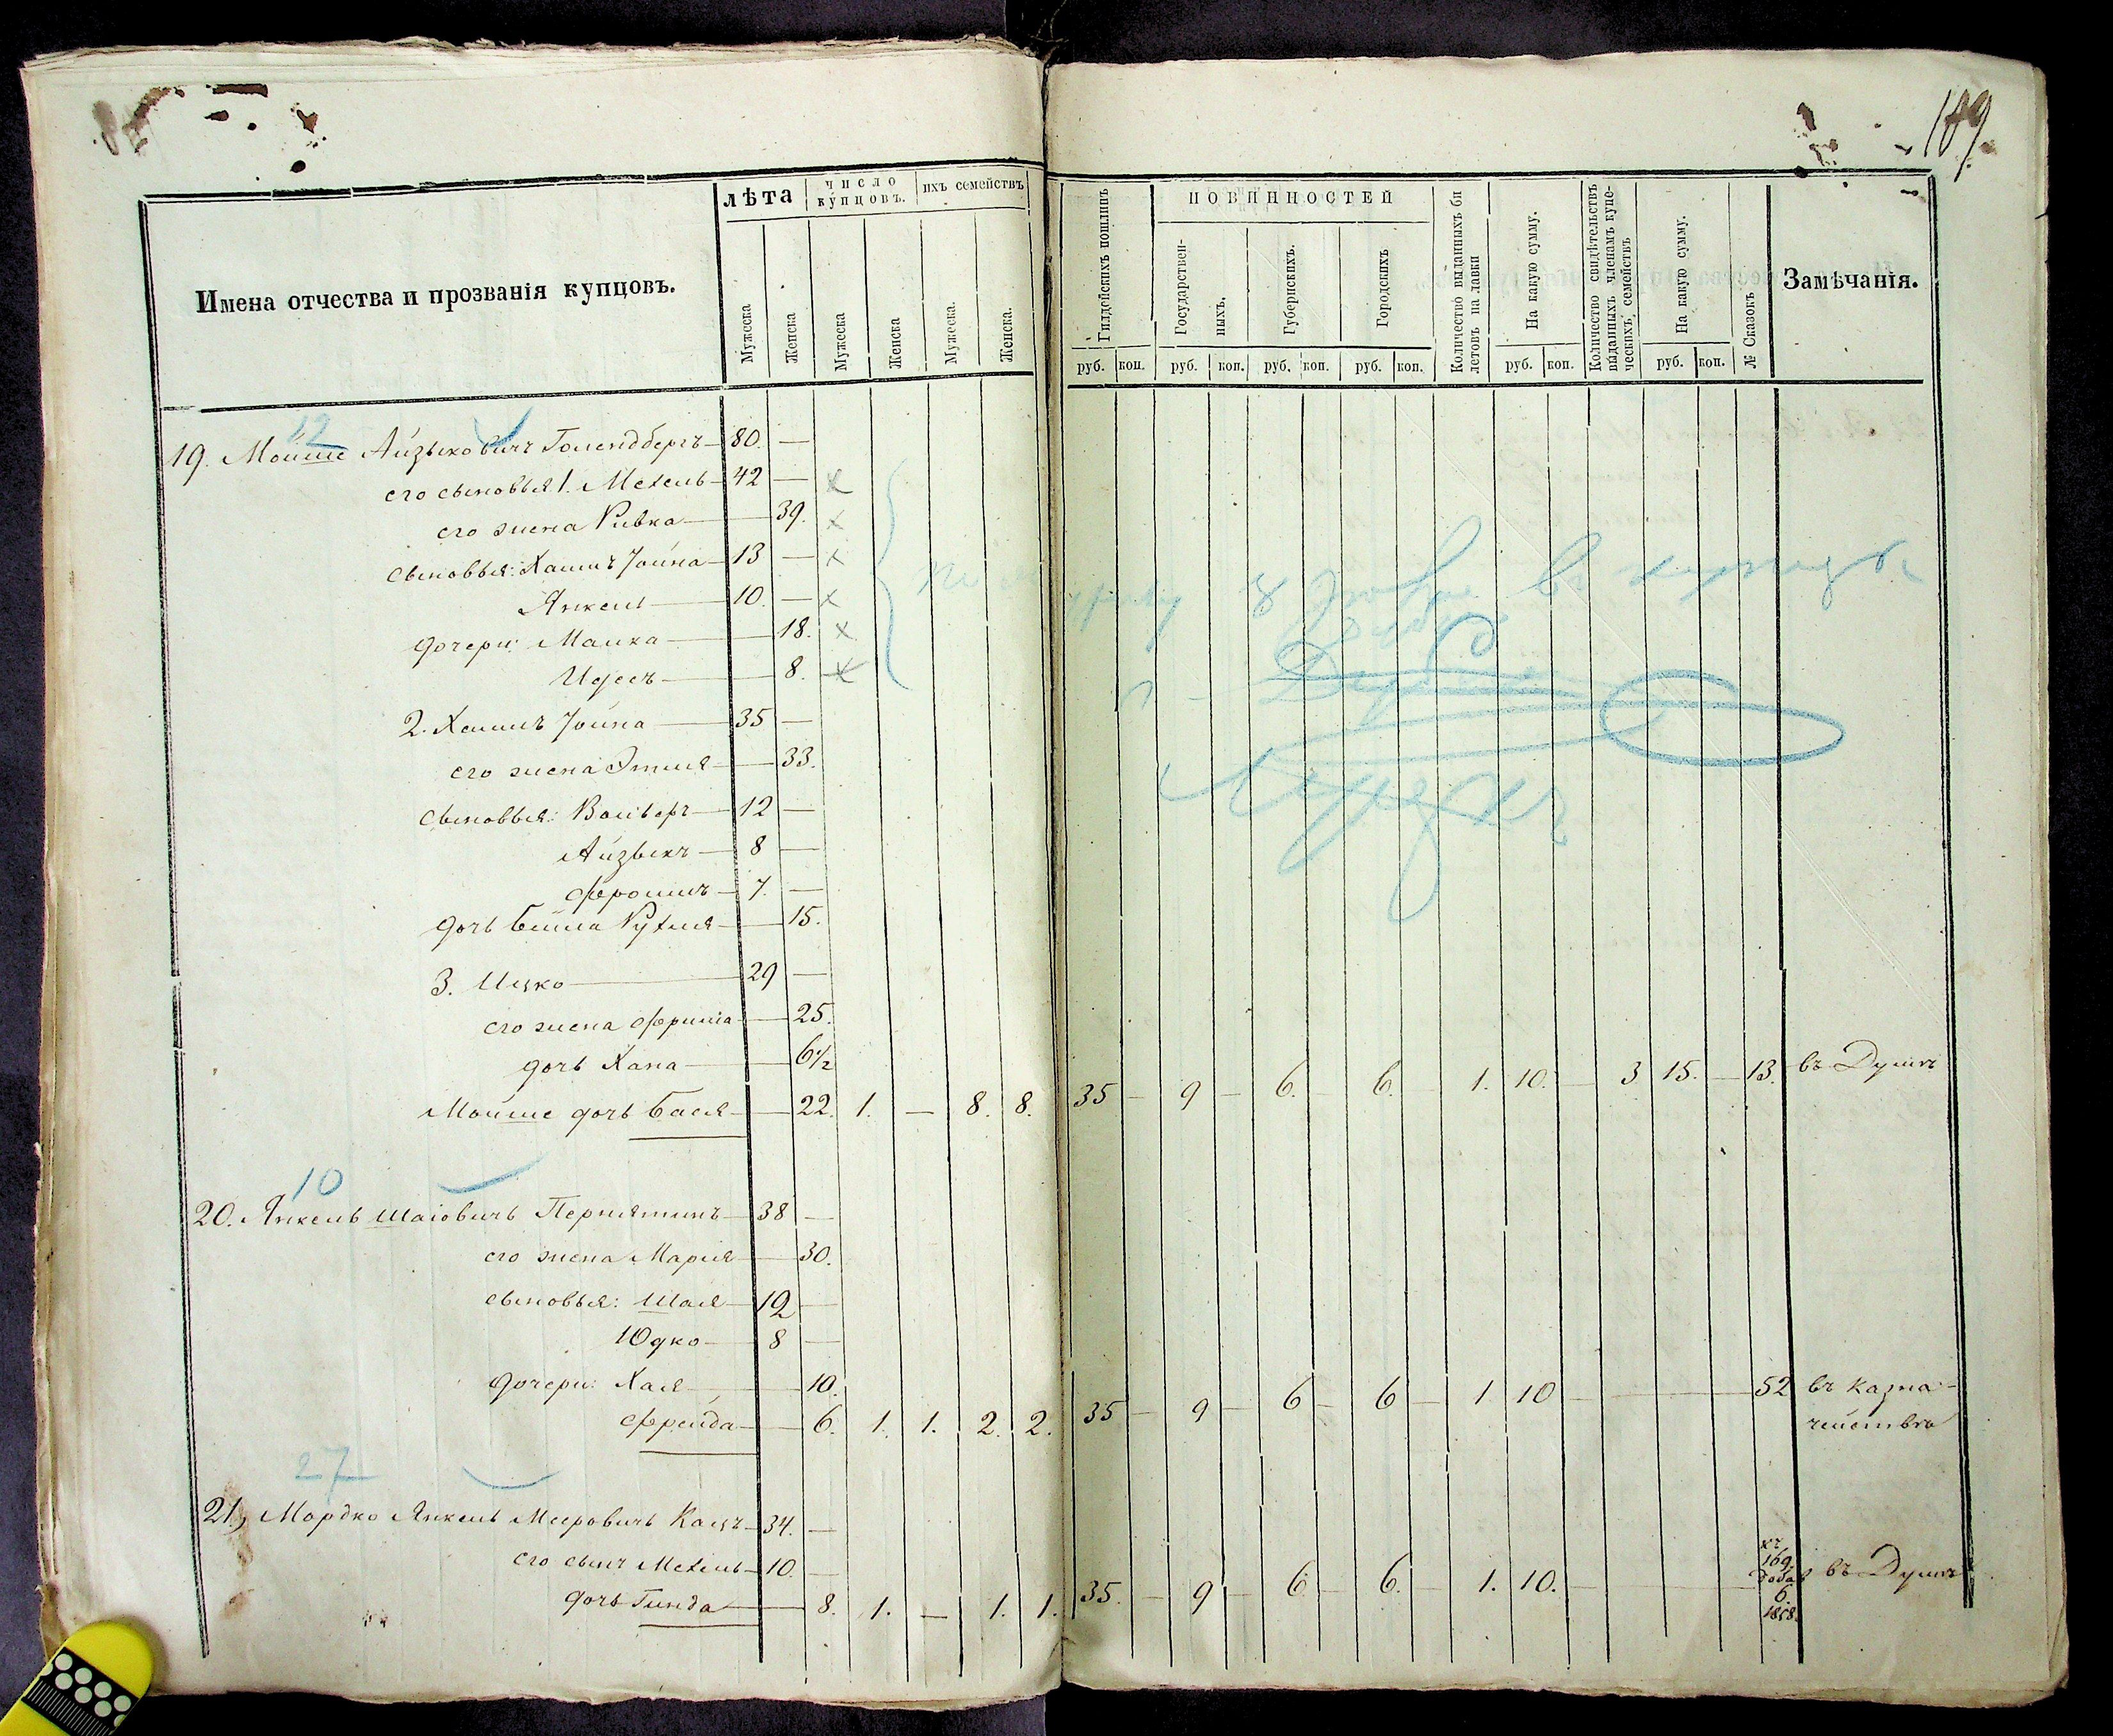 149.
Имена отчества и прозванія купцовъ.
лѣта
число купцовъ.
ихъ семействъ
Мужеска
Женска
Мужеска
Женска
Мужеска.
Женска.
Гильдейскихъ пошлинъ
ПОВИННОСТЕЙ
Государствен-
ныхъ.
Губернскихъ.
Городскихъ
Количество выданныхъ би
летовъ на лавки
На какую сумму.
Количество свидѣтельствъ
выданныхъ членамъ купе-
ческихъ семействъ
На какую сумму.
№ Сказокъ
Замѣчанія.
руб. коп. руб. коп. руб. коп. руб. коп. руб. коп. руб. коп.
12
19. Мойше Айзыковичъ Голендбергъ 80. —
его сыновья 1. Мехель 42 — х
его жена Ривка — 39. х
сыновья: Хаимъ Іойна 13 — х
Янкель 10. — х
дочери: Малка — 18. х
Идесъ — 8. х
2. Хаимъ Іойна 35 —
его жена Этля — 33.
сыновья: Вольберъ 12 —
Айзыкъ 8 —
Фроимъ 7. —
дочь Бейла Рухля — 15.
3. Ицко 29 —
его жена Фрима — 25.
дочь Хана — 6 1/2
Мойше дочь Бася — 22. 1. — 8. 8. 35 — 9 — 6. — 6. — 1. 10. — 3 15. — 13. въ Думѣ
10
20. Янкель Шаіовичъ Пернятинъ 38 —
его жена Марія — 30.
сыновья: Шая 12 —
Юдко 8 —
дочери: Хая — 10.
Фрейда — 6. 1. 1. 2. 2. 35 — 9 — 6 — 6 — 1 10 — 52 въ Казна-
чействѣ
27
21, Мордко Янкель Мееровичъ Кацъ 34. —
его сынъ Мехель 10. —
дочь Гинда — 8. 1. — 1. 1. 35. — 9 — 6 — 6. — 1. 10. — въ Думѣ
къ
169.
доба
6.
1858.